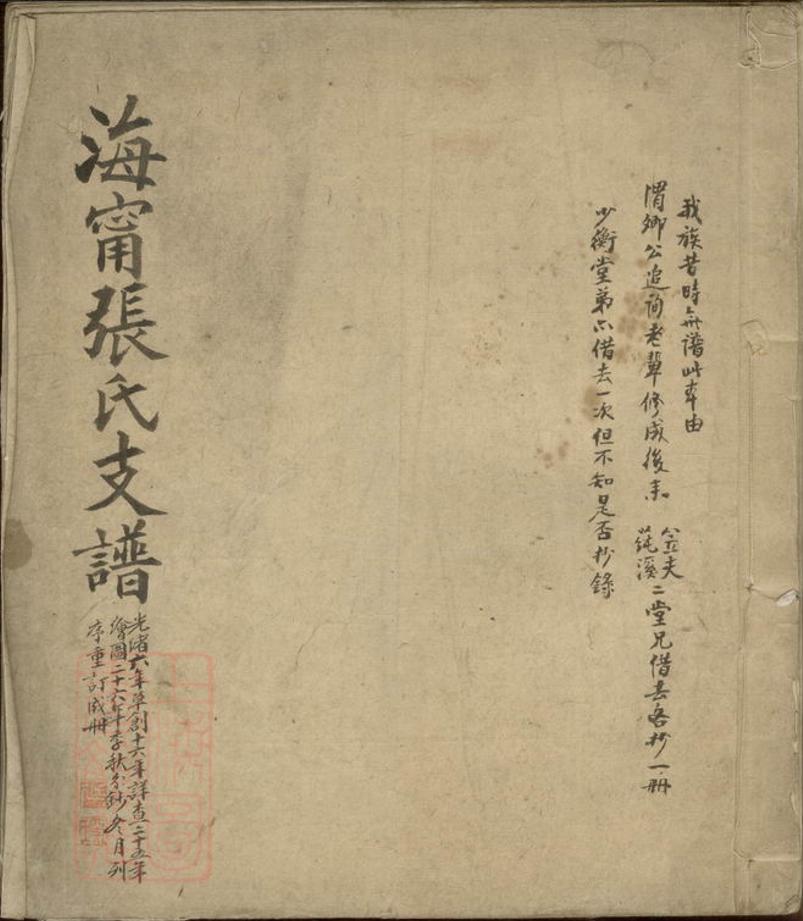 我族昔時無譜此本由
渭卿公追詢老輩修成後來
蒓溪二堂兄借去各抄一冊
少衡堂弟亦借去一次但不知是否抄錄
海甯張氏支譜
光緒六年草創十六年詳查二十五年
繪圖二十六年季秋分鈔冬月列
序重訂成冊